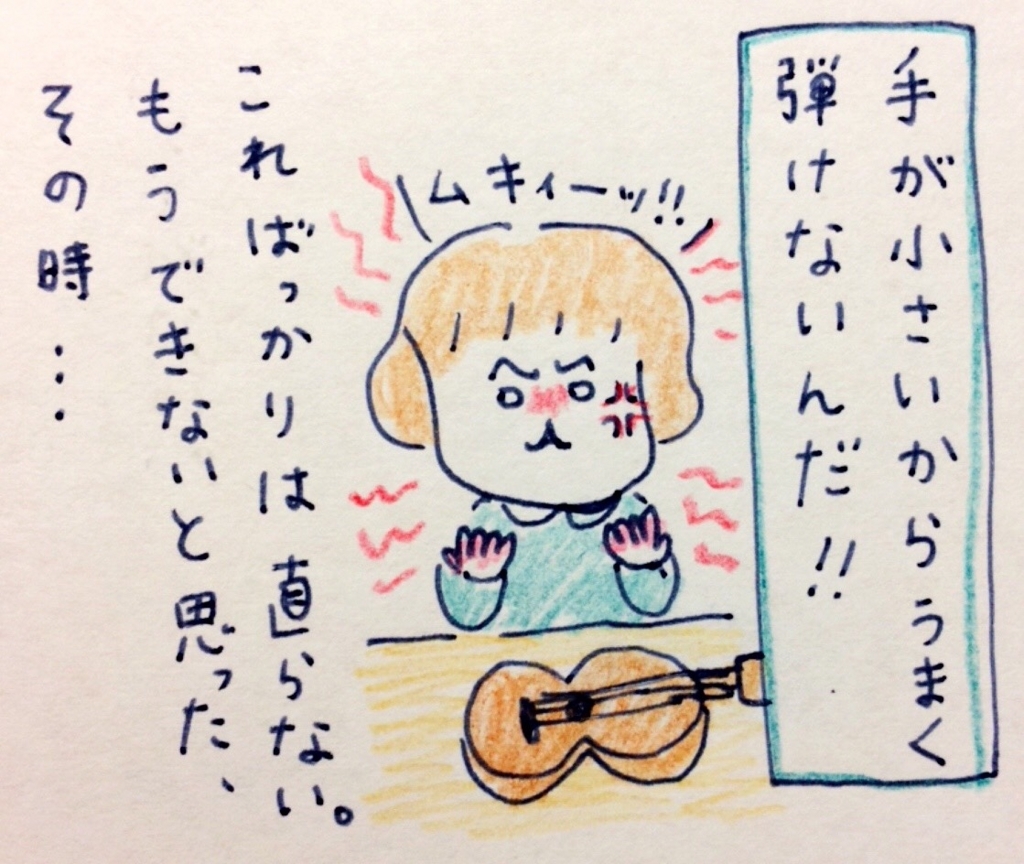 手が小さいからうまく
弾けないんだ!!
ムキィーッ!!
こればっかりは直らない。
もうできないと思った、
その時...